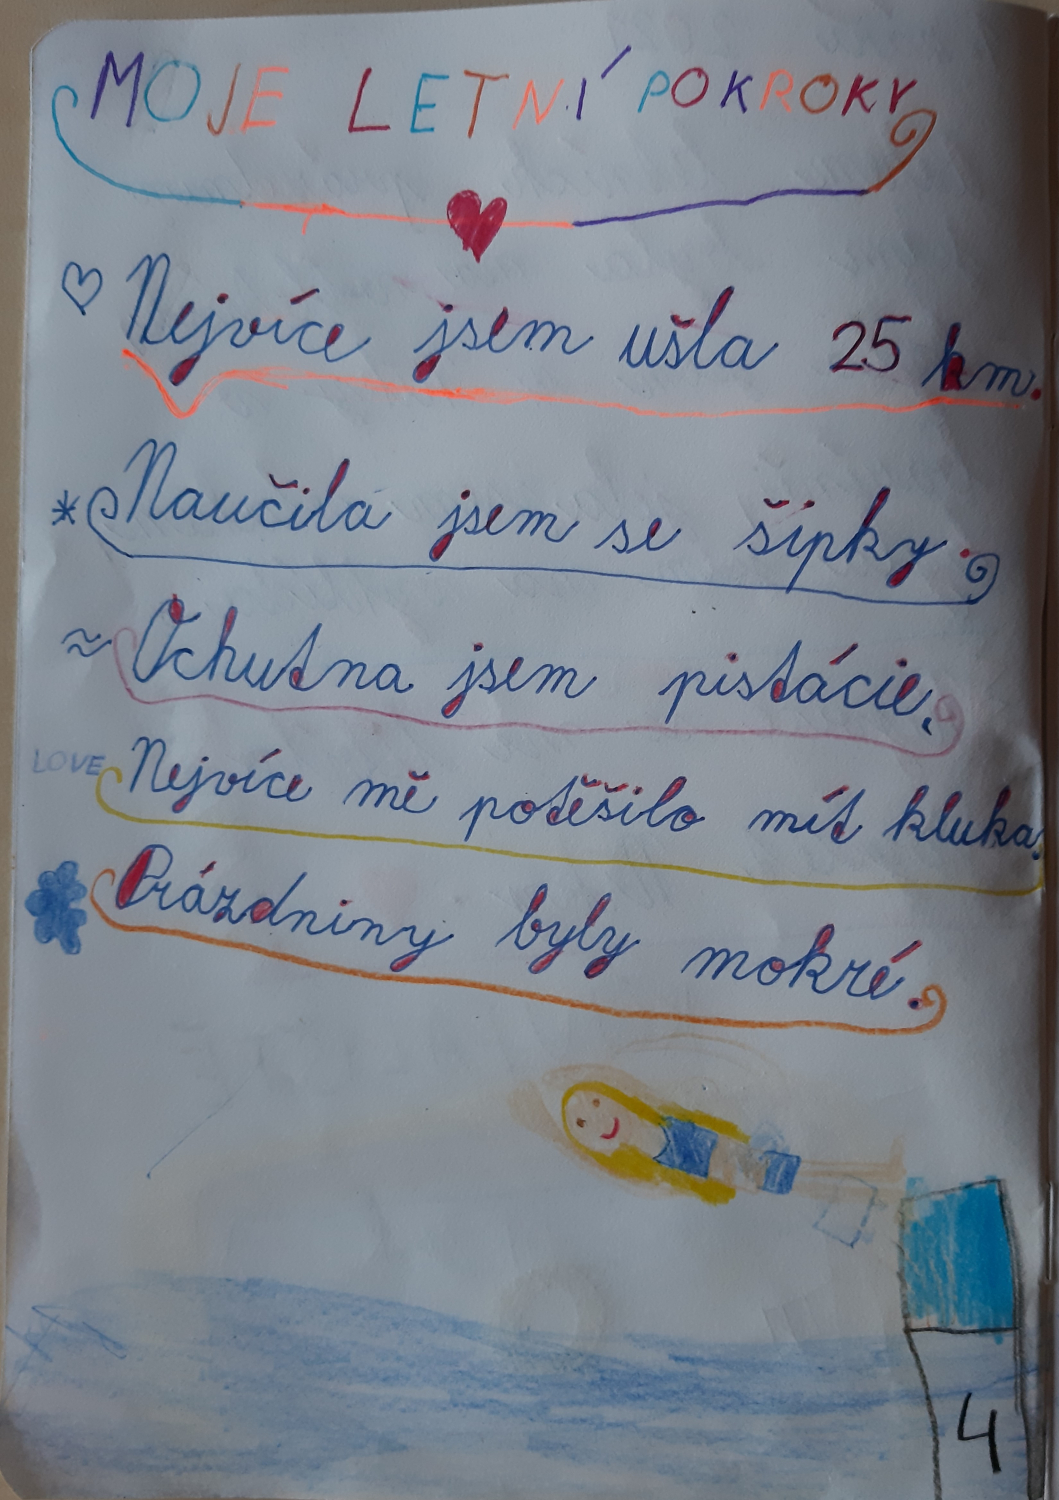 MOJE LETNÍ POKROKY
Nejvíce jsem ušla 25 km.
Naučila jsem se šipky.
Ochutna jsem pistácie.
LOVE Nejvíce mě potěšilo mít kluka.
Prázdniny byly mokré.
4